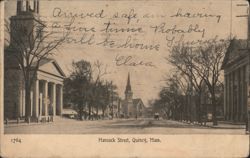 Arrived safe am having
a fine time Probably
Will be home Thursday
Clara
1764
Hancock Street, Quincy, Mass.